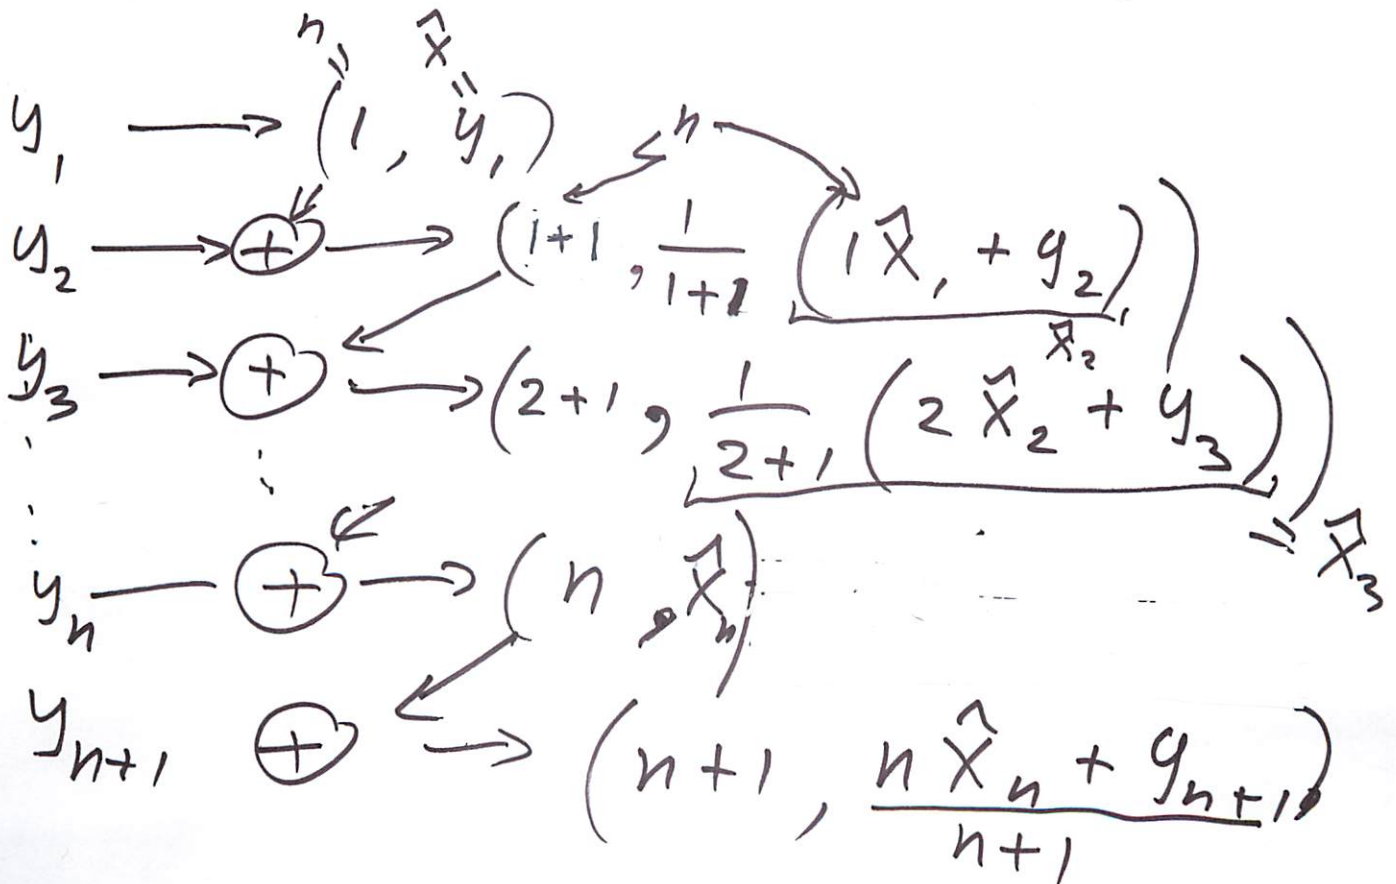 n x̂
y₁ → (1, y₁) n
y₂ → ⊕ → (1+1, 1/(1+1) (1x̂₁ + y₂))
x̂₂
y₃ → ⊕ → (2+1, 1/(2+1) (2x̂₂ + y₃))
= x̂₃
yₙ — ⊕ → (n, x̂ₙ)
yₙ₊₁ ⊕ → (n+1, (nx̂ₙ + yₙ₊₁)/(n+1))